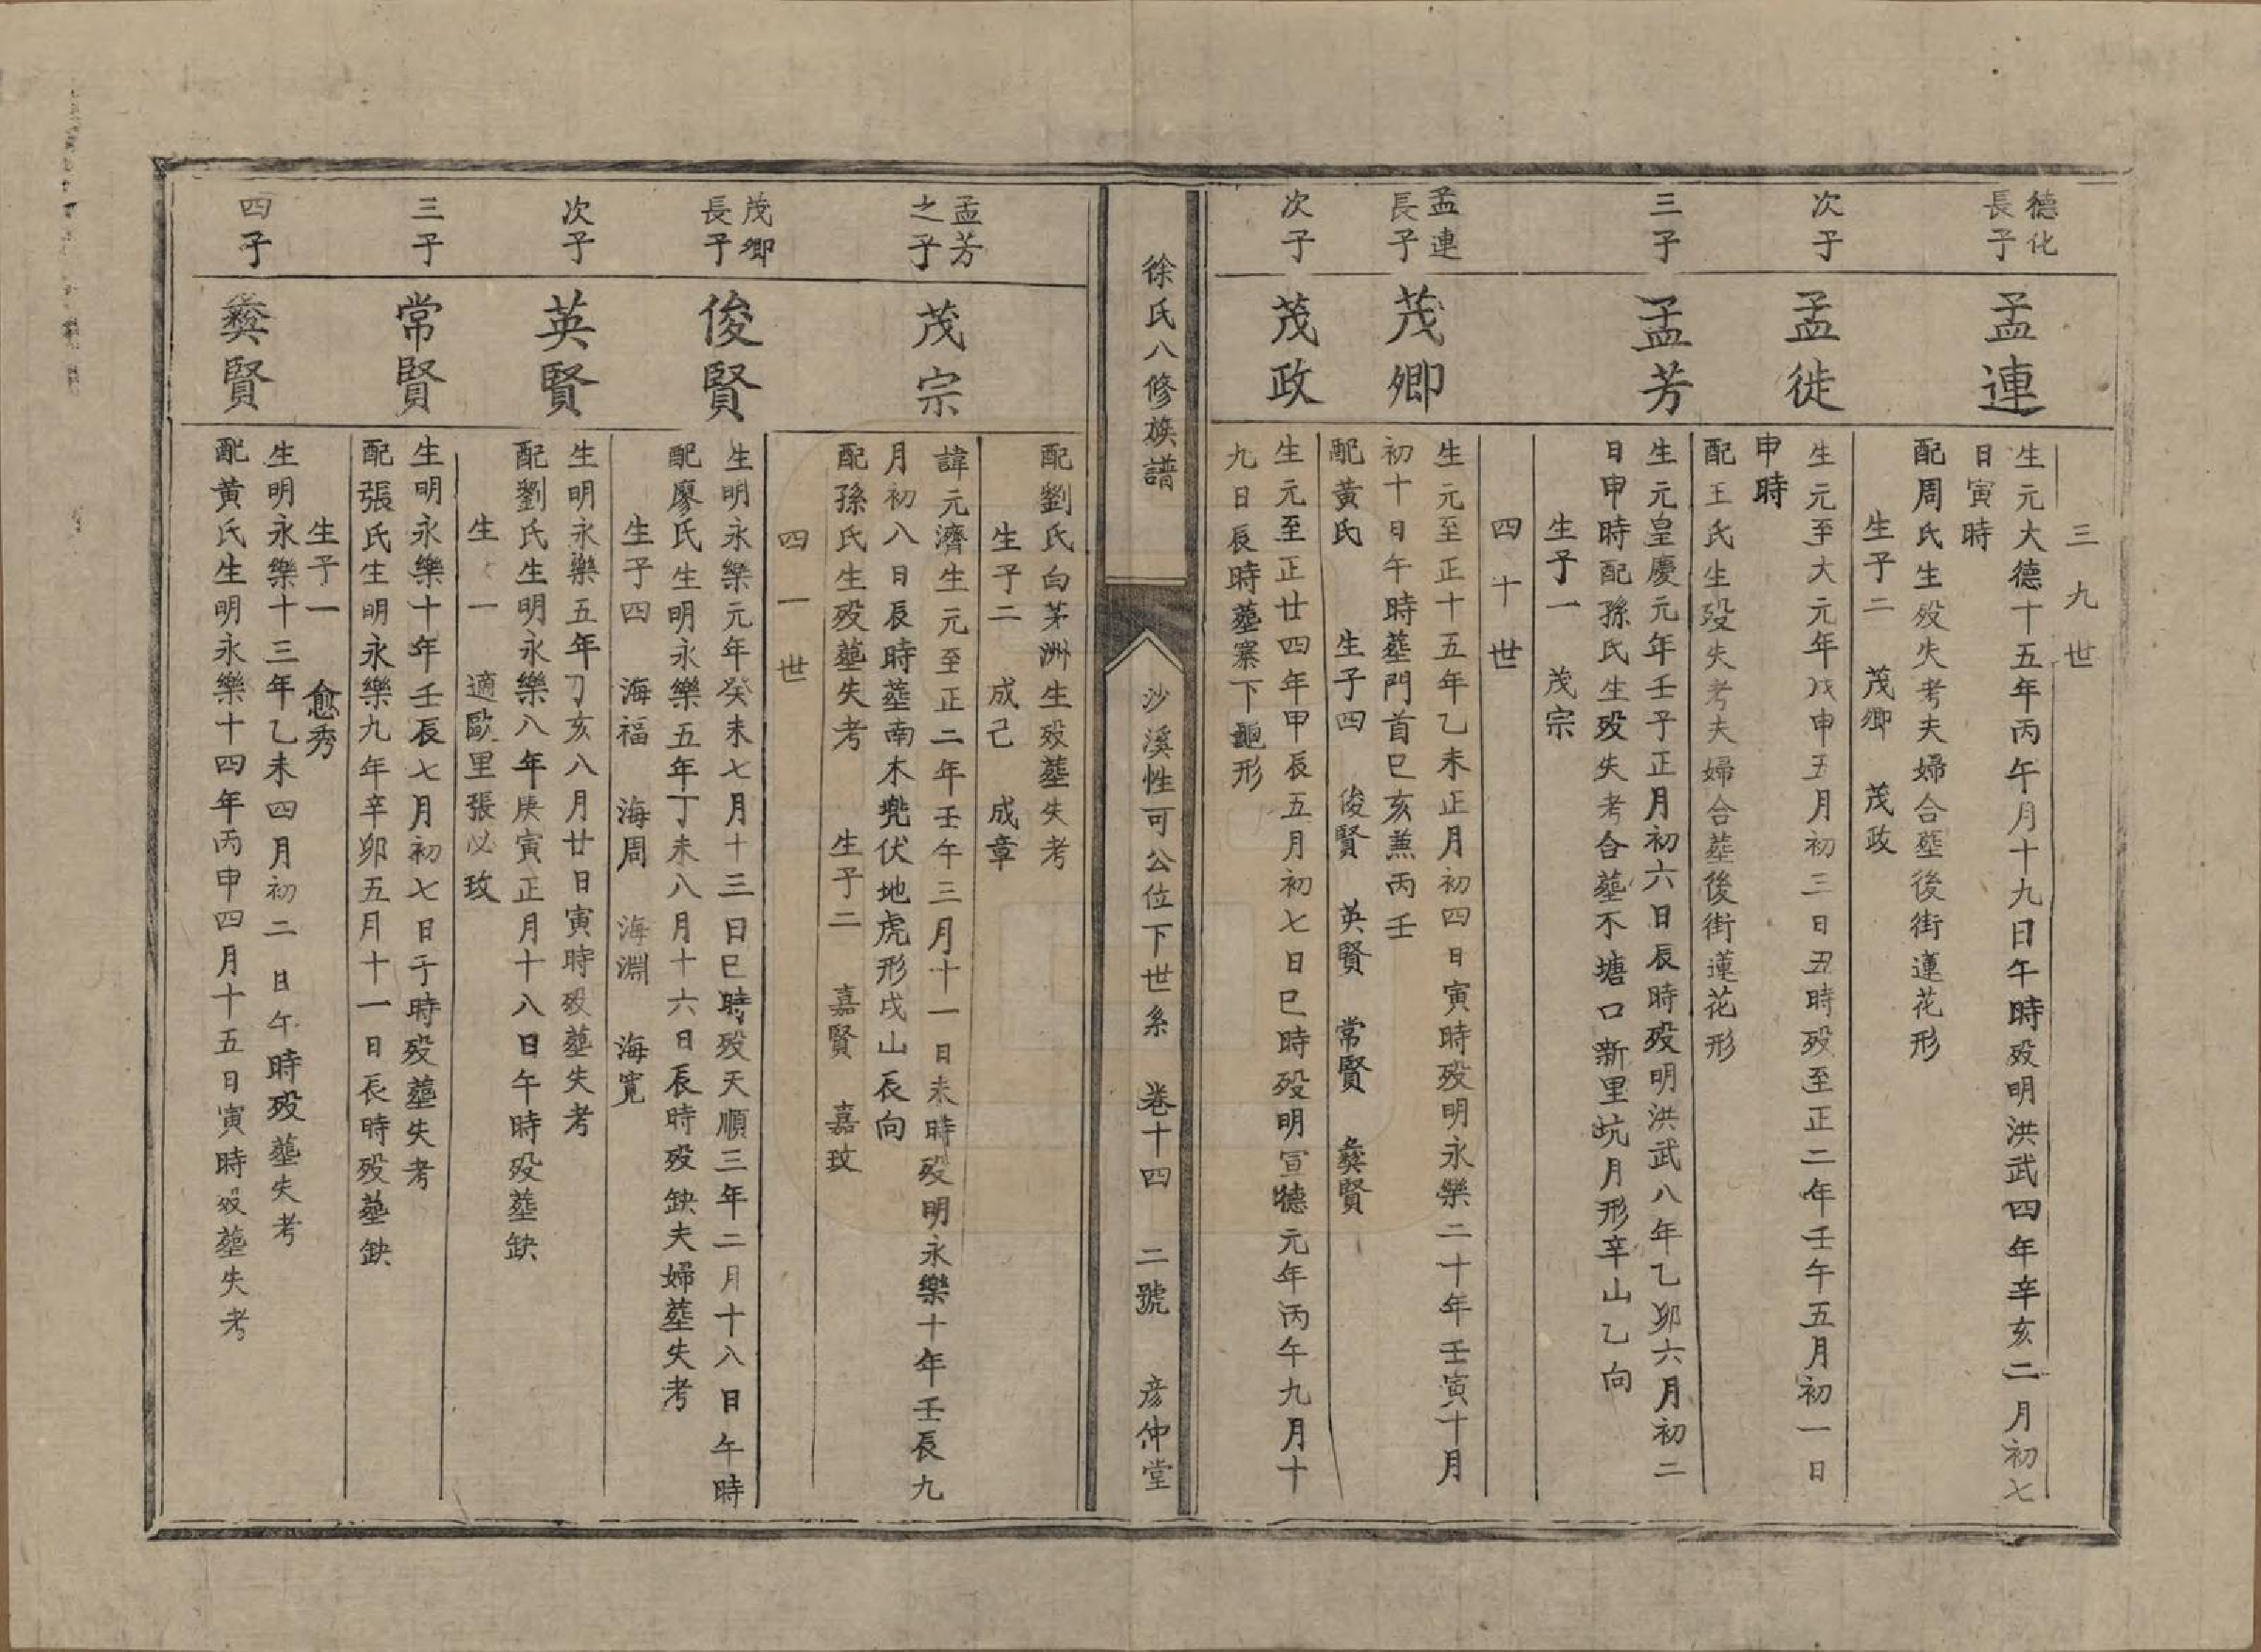 三九世
德化
長子
孟連
生元大德十五年丙午月十九日午時殁明洪武四年辛亥二月初七
日寅時
配周氏生殁失考夫婦合塟後街蓮花形
生子二　茂卿　茂政
次子
孟徙
生元至大元年戊申五月初三日丑時殁至正二年壬午五月初一日
申時
配王氏生殁失考夫婦合塟後街蓮花形
三子
孟芳
生元皇慶元年壬子正月初六日辰時殁明洪武八年乙卯六月初二
日申時配孫氏生殁失考合塟不塘口新里坑月形辛山乙向
生子一　茂宗
四十世
孟連
長子
茂卿
生元至正十五年乙未正月初四日寅時殁明永樂二十年壬寅十月
初十日午時塟門首巳亥兼丙壬
配黃氏　生子四　俊賢　英賢　常賢　彝賢
次子
茂政
生元至正廿四年甲辰五月初七日巳時殁明宣德元年丙午九月十
九日辰時塟寨下龜形
徐氏八修族譜
沙溪性可公位下世系　卷十四　二號　彦仲堂
配劉氏白茅洲生殁塟失考
生子二　成己　成章
孟芳
之子
茂宗
諱元濟生元至正二年壬午三月十一日未時殁明永樂十年壬辰九
月初八日辰時塟南木兠伏地虎形戌山辰向
配孫氏生殁塟失考　生子二　嘉賢　嘉玟
四一世
茂卿
長子
俊賢
生明永樂元年癸未七月十三日巳時殁天順三年二月十八日午時
配廖氏生明永樂五年丁未八月十六日辰時殁缺夫婦塟失考
生子四　海福　海周　海淵　海寛
次子
英賢
生明永樂五年丁亥八月廿日寅時殁塟失考
配劉氏生明永樂八年庚寅正月十八日午時殁塟缺
生女一　適歐里張必玫
三子
常賢
生明永樂十年壬辰七月初七日于時殁塟失考
配張氏生明永樂九年辛卯五月十一日辰時殁塟缺
生子一　愈秀
四子
彝賢
生明永樂十三年乙未四月初二日午時殁塟失考
配黃氏生明永樂十四年丙申四月十五日寅時殁塟失考